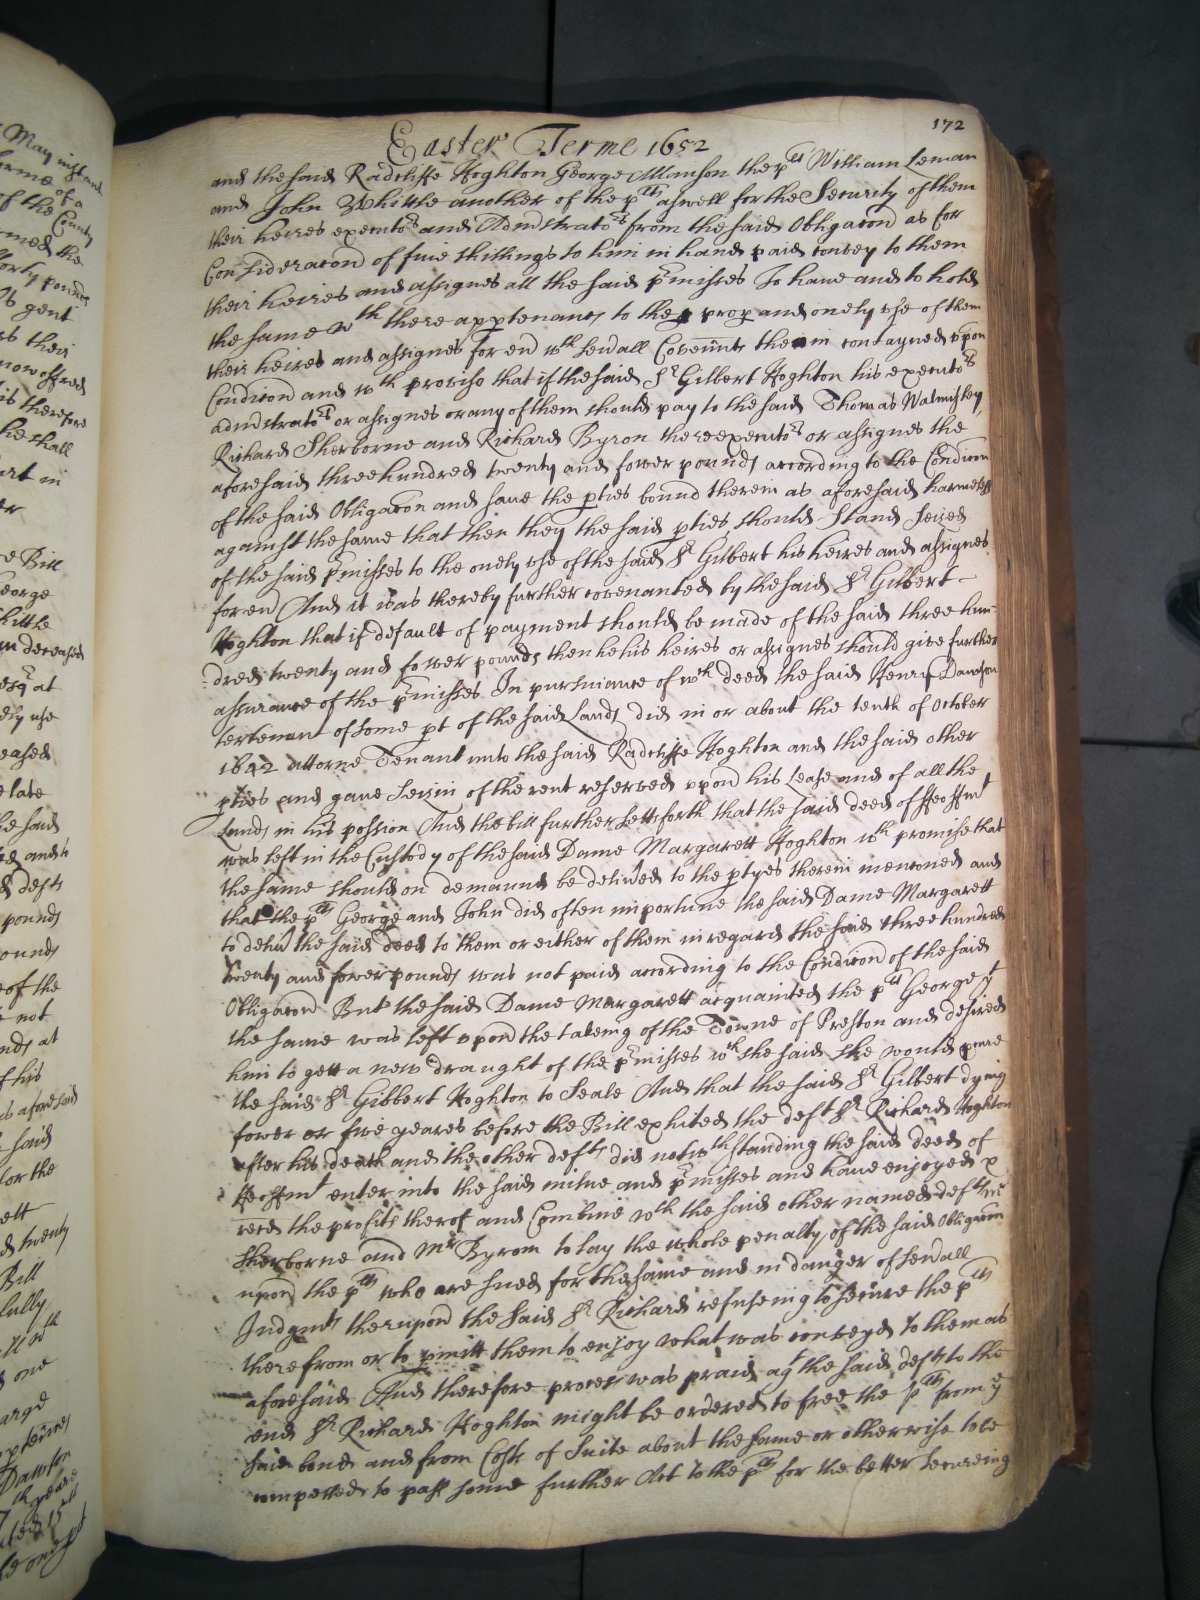 172
Easter Terme 1652
and the said Radcliffe Hoghton George Manson the plt William Leman
and John Whittle another of the plts aswell for the Security of them
their heires executors and Admstrators from the said Obligacon as for
Consideracon of five shillings to him in hand paid convey to them
their heires and assignes all the said pmisses To have and to hold
the same wth there apptenancs to the prop and onely use of them
their heires and assignes for evr wth sevall Covennts therein contayned upon
Condicon and wth proviso that if the said Sr Gilbert Hoghton his executors
admstrators or assignes or any of them should pay to the said Thomas Walmisley
Richard Sherborne and Richard Byron there executors or assignes the
aforesaid three hundred twenty and fower pounds according to the Condicon
of the said Obligacon and save the pties bound therein as aforesaid harmeless
against the same that then they the said pties should Stand Seized
of the said pmisses to the onely use of the said Sr Gilbert his heires and assignes
for evr And it was thereby further covenanted by the said Sr Gilbert
Hoghton that if default of payment should be made of the said three hun-
dred twenty and fower pounds then he his heires or assignes should give further
assurance of the pmisses In pursuance of wch deed the said Henry Dawson
tertenant of some pt of the said Lands did in or about the tenth of October
1642 attorne Tenant unto the said Radcliffe Hoghton and the said other
pties and gave Seizin of the rent reserved upon his Lease and of all the
Lands in his possion And the bill further setts forth that the said deed of Feoffmt
was left in the Custody of the said Dame Margarett Hoghton wth promise that
the same should on demaund be delived to the ptyes therein menconed and
that the plts George and John did often importune the said Dame Margarett
to deliv the said deed to them or either of them in regard the said three hundred
twenty and fower pounds was not paid according to the Condicon of the said
Obligacon But the said Dame Margarett acquainted the plt George yt
the same was left upon the takeing of the Towne of Preston and desired
him to gett a new draught of the pmisses wch she said she would pcure
the said Sr Gilbert Hoghton to Seale And that the said Sr Gilbert dying
fower or five yeares before the Bill exhited the deft Sr Richard Hoghton
after his death and the other defts did notwthstanding the said deed of
Feoffmt enter into the said milne and pmisses and have enjoyed &
recd the profitts therof and Combine wth the said other named defts Mr
Sherborne and Mr Byrom to lay the whole penalty of the said Obligacon
upon the plts who are sued for the same and in danger of sevall
Judgmts therupon the said Sr Richard refuseing to secure the plts
therefrom or to pmitt them to enjoy what was conveyed to them as
aforesaid And therefore proces was praid agt the said defts to the
end Sr Richard Hoghton might be ordered to free the plts from ye
said bond and from Costs of Suite about the same or otherwise to be
compelled to pass some further Act to the plts for the better secureing